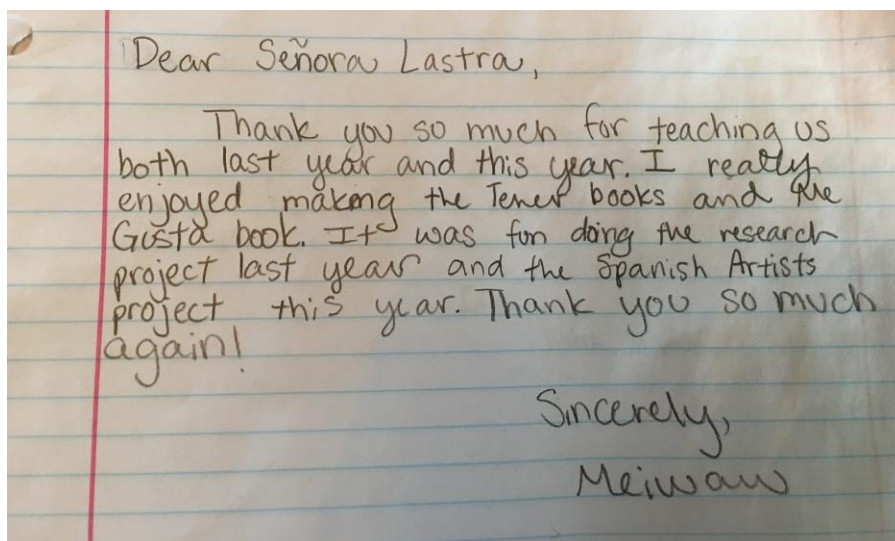 Dear Señora Lastra,
Thank you so much for teaching us
both last year and this year. I really
enjoyed making the Tener books and the
Gusta book. It was fun doing the research
project last year and the Spanish Artists
project this year. Thank you so much
again!
Sincerely,